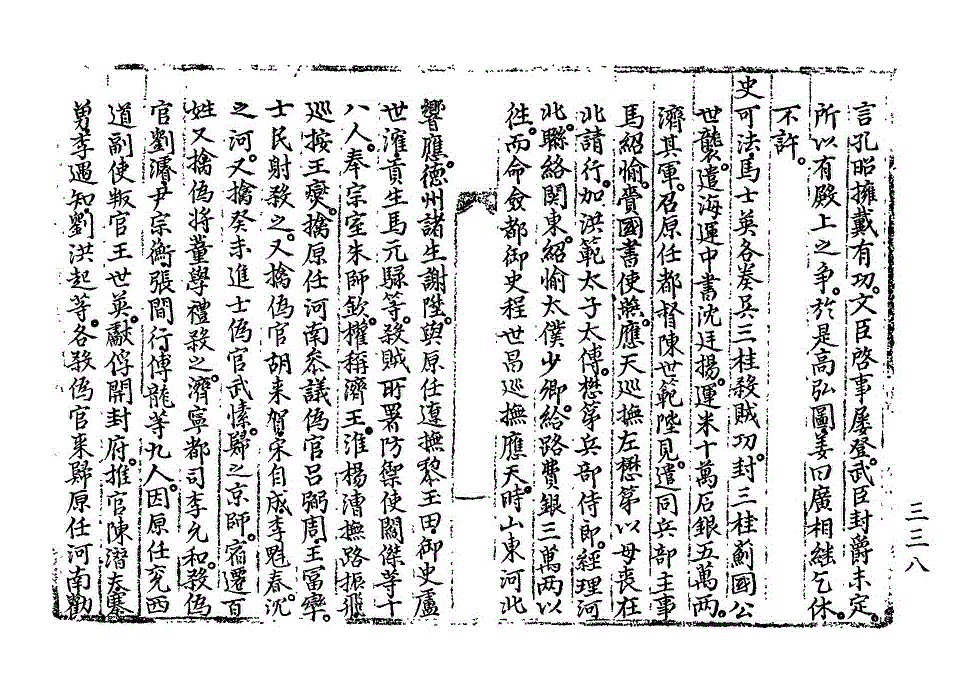 言孔昭擁戴有功。文臣啓事屢登。武臣封爵未定。
所以有殿上之爭。於是高弘圖姜曰廣相繼乞休。
不許。
史可法馬士英各奏吳三桂殺賊功。封三桂薊國公
世襲。遣海運中書沈廷揚。運米十萬石銀五萬兩。
濟其軍。召原任都督陳世範陛見。遣同兵部主事
馬紹愉。賫國書使燕。應天巡撫左懋第以母喪在
北請行。加洪範太子太傅。懋第兵部侍郎。經理河
北。聯絡関東。紹愉太僕少卿。給路費銀三萬兩以
徃。而命僉都御史程世昌巡撫應天。時山東河北
響應。德州諸生謝陞。與原任遵撫黎玉田御史盧
世㴶貢生馬元騄等。殺賊所署防禦使閻傑等十
八人。奉宗室朱師欽。權稱濟王。淮揚漕撫路振飛
巡按王燮。擒原任河南叅議偽官呂弼周王富率。
士民射殺之。又擒偽官胡来賀。宋自成。李魁春。沉
之河。又擒癸未進士偽官武愫。歸之京師。宿遷百
姓又擒偽將董學禮殺之。濟寧都司李允和。殺偽
官劉濬尹宗衡。張問行傅龍等九人。因原任兖西
道副使叛官王世英。獻俘開封府。推官陳潛夫。寨
勇李遇知。劉洪起等。各殺偽官来歸。原任河南勸
三三八